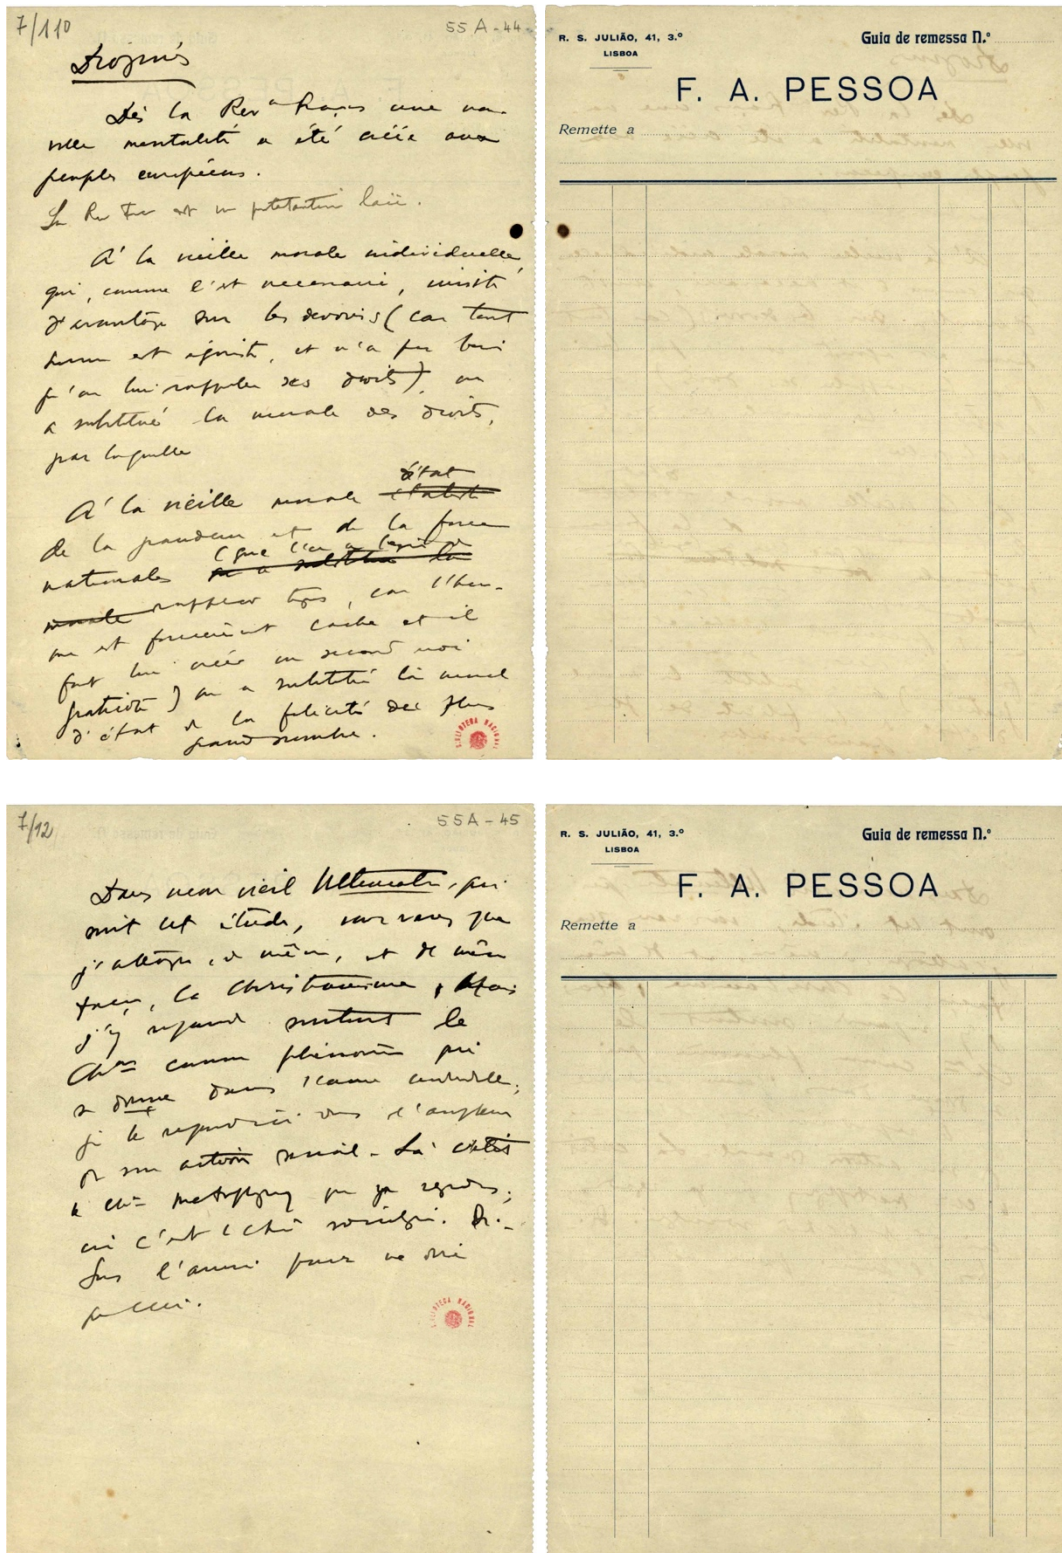 7/110
55A-44
Dès la Rev^n Franç une nou-
velle mentalité a été créée aux
peuples européens.
La Rev Fran est un laïc.
À la vieille morale individuelle,
qui, comme c'est necessaire, insiste
d'avantage sur les devoirs (car tout
homme est égoiste, et n'a pas besoin
qu'on lui rappelle ses droits), on
a substitué la morale des droits,
par laquelle
d'état
À la vieille morale
de la grandeur et de la force
nationales (que l'on a
rappeler tojs, car l'hom-
me est forcément lache et il
faut lui créer un second moi
) on a substitué la morale
d'état de la felicité des plus
grand nombre.
BIBLIOTECA NACIONAL
R. S. JULIÃO, 41, 3.º
LISBOA
Guia de remessa N.º
F. A. PESSOA
Remette a
7/12
55A-45
Dans mon vieil Ultimatum, qui
suit cet étude, vous voyez que
j'attaque, de même, et de même
façon, le Christianisme, Mais
j'y regarde surtout le
Ch^me comme phénomène qui
se donne dans l'ame individuelle;
je le ici dans l'
de son action social. Là c'était
le ch^me que je regardais;
ici c'est le sociologique.
l'
BIBLIOTECA NACIONAL
R. S. JULIÃO, 41, 3.º
LISBOA
Guia de remessa N.º
F. A. PESSOA
Remette a